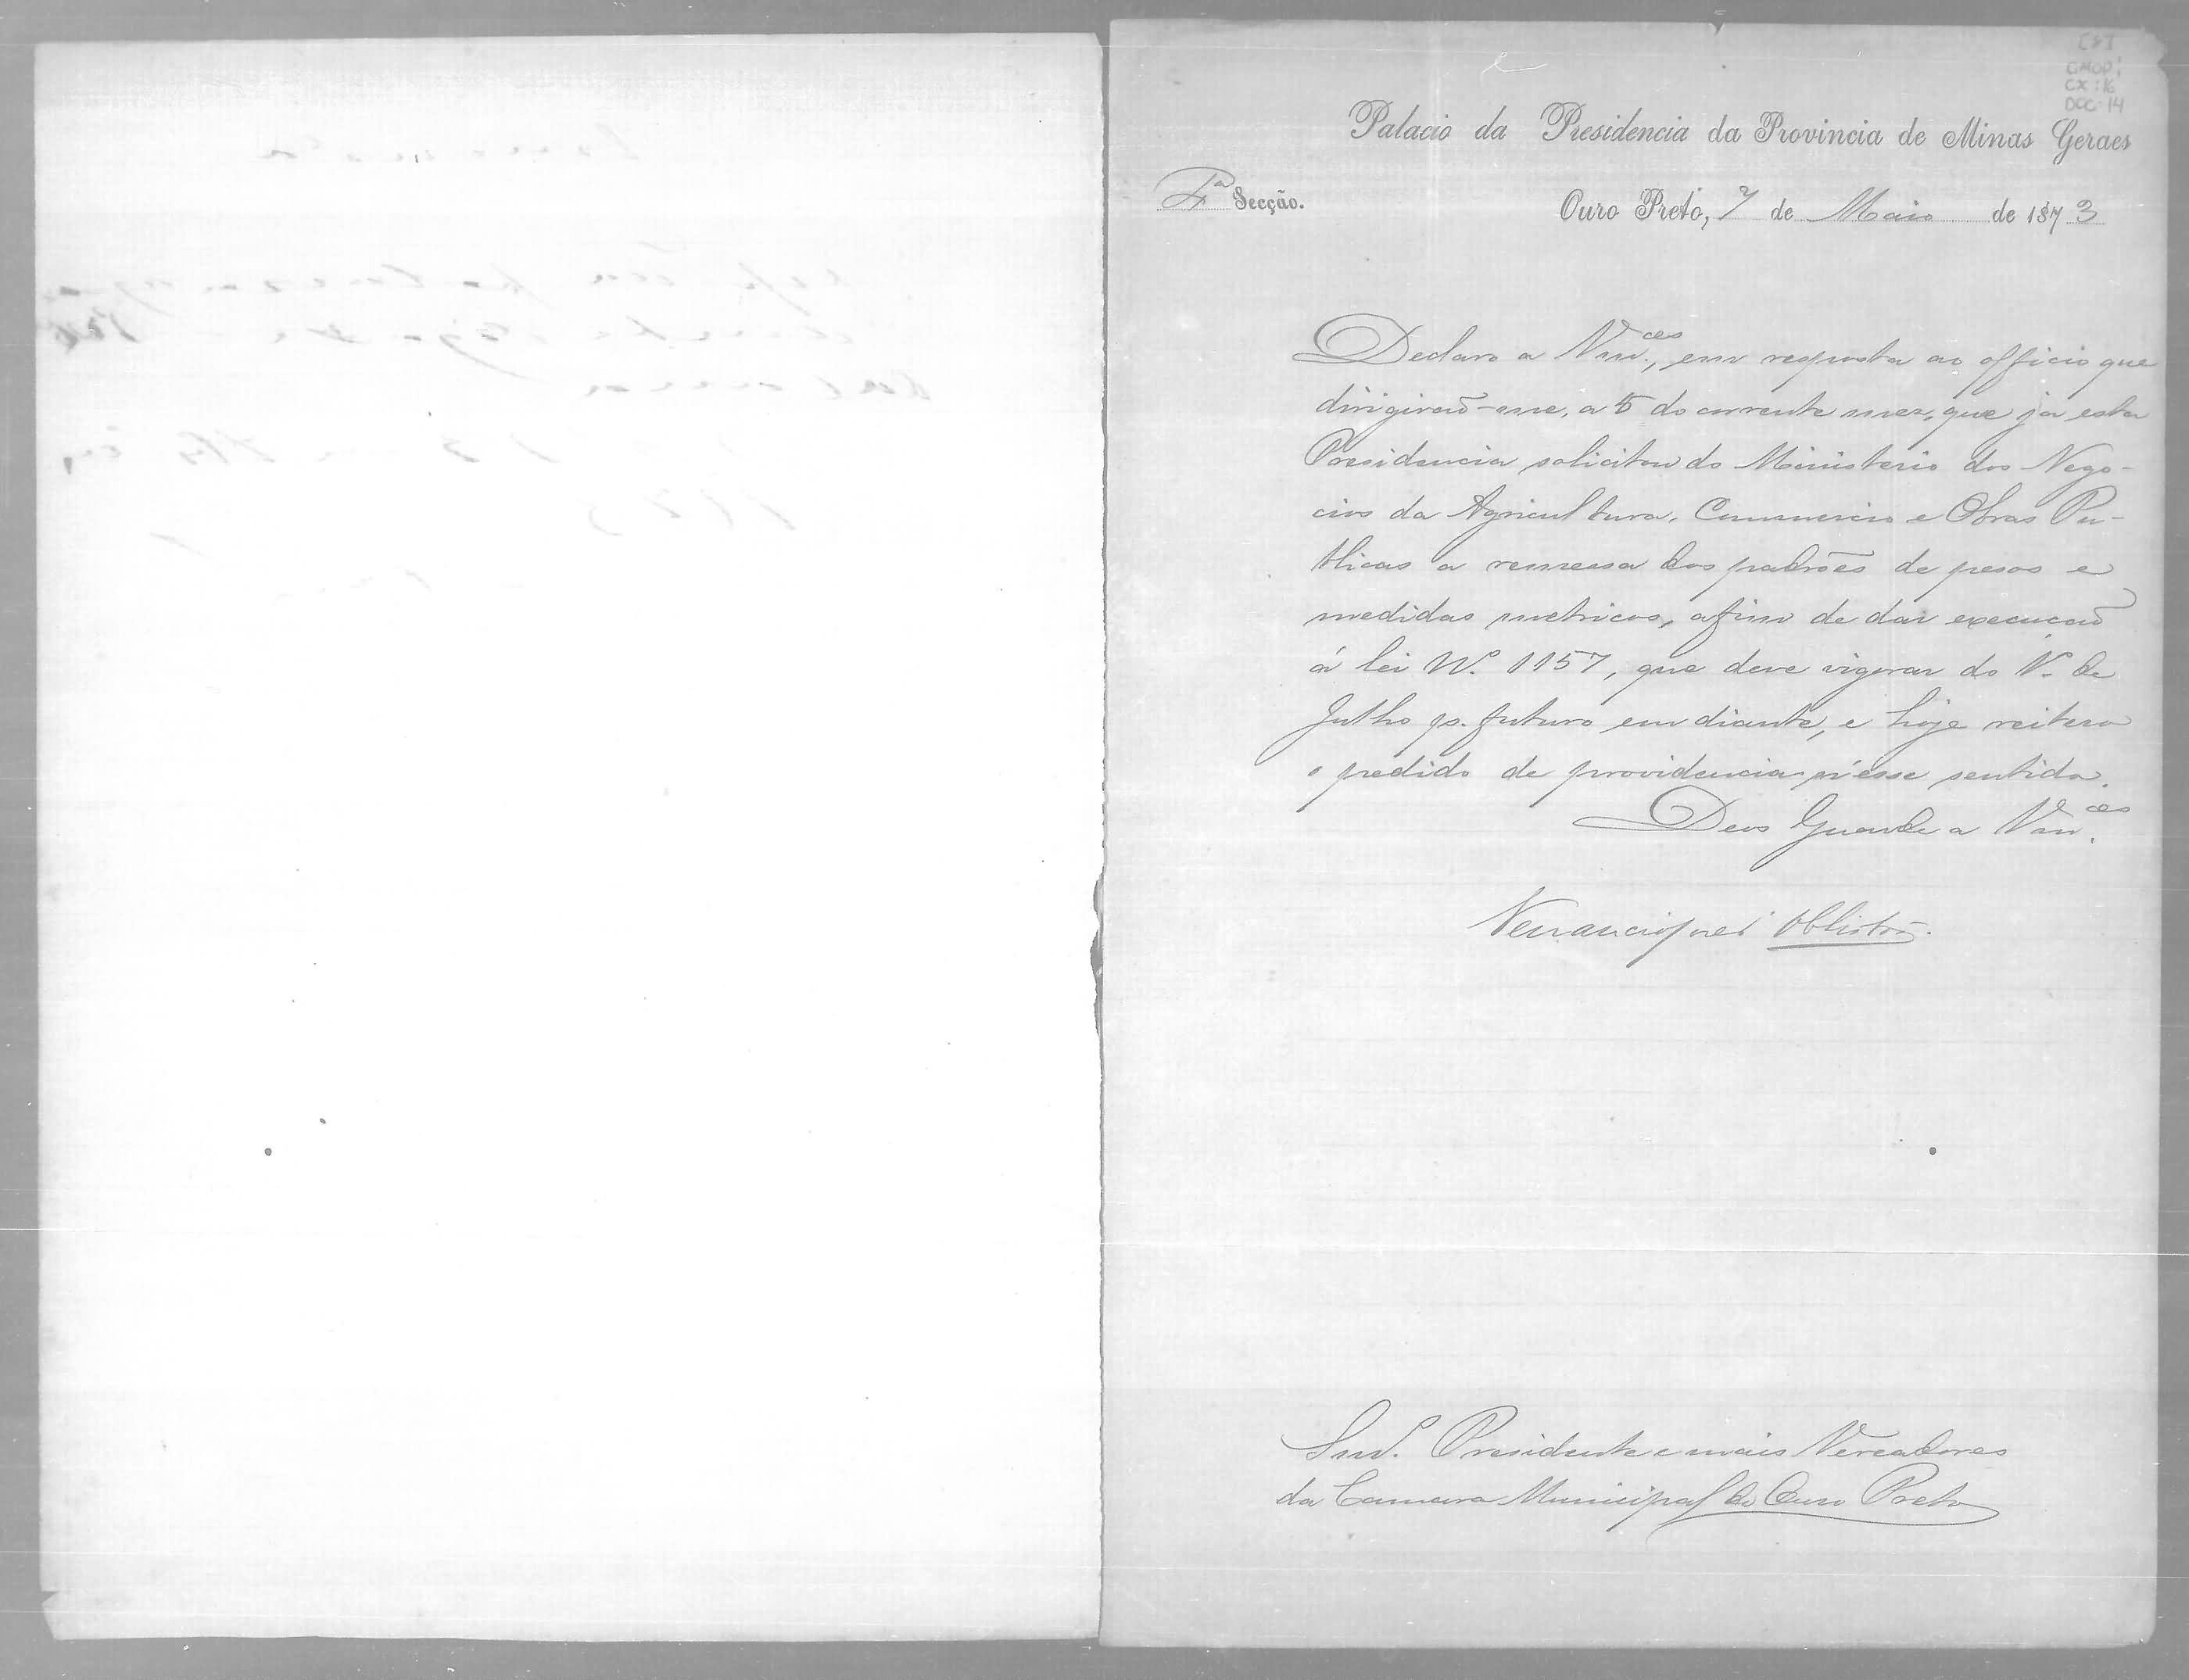 CMOP
CX: 16
DOC: 14
Palacio da Presidencia da Provincia de Minas Geraes
4ª Secção.
Ouro Preto, 7 de Maio de 1873
Declaro a Vm.ces, em resposta ao officio que
dirigiraõ-me, a 5 do corrente mez, que já esta
Presidencia solicitou do Ministerio dos Nego-
cios da Agricultura, Commercio e Obras Pu-
blicas a remessa dos padrões de pesos e
medidas metricos, afim de dar execuçaõ
á lei Nº. 1157, que deve vigorar do 1º. de
Julho p. futuro em diante, e hoje reitero
o pedido de providencia n'esse sentido.
Deos Guarde a Vm.ces
Venancio José
Snr. Presidente e mais Vereadores
da Camara Municipal do Ouro Preto